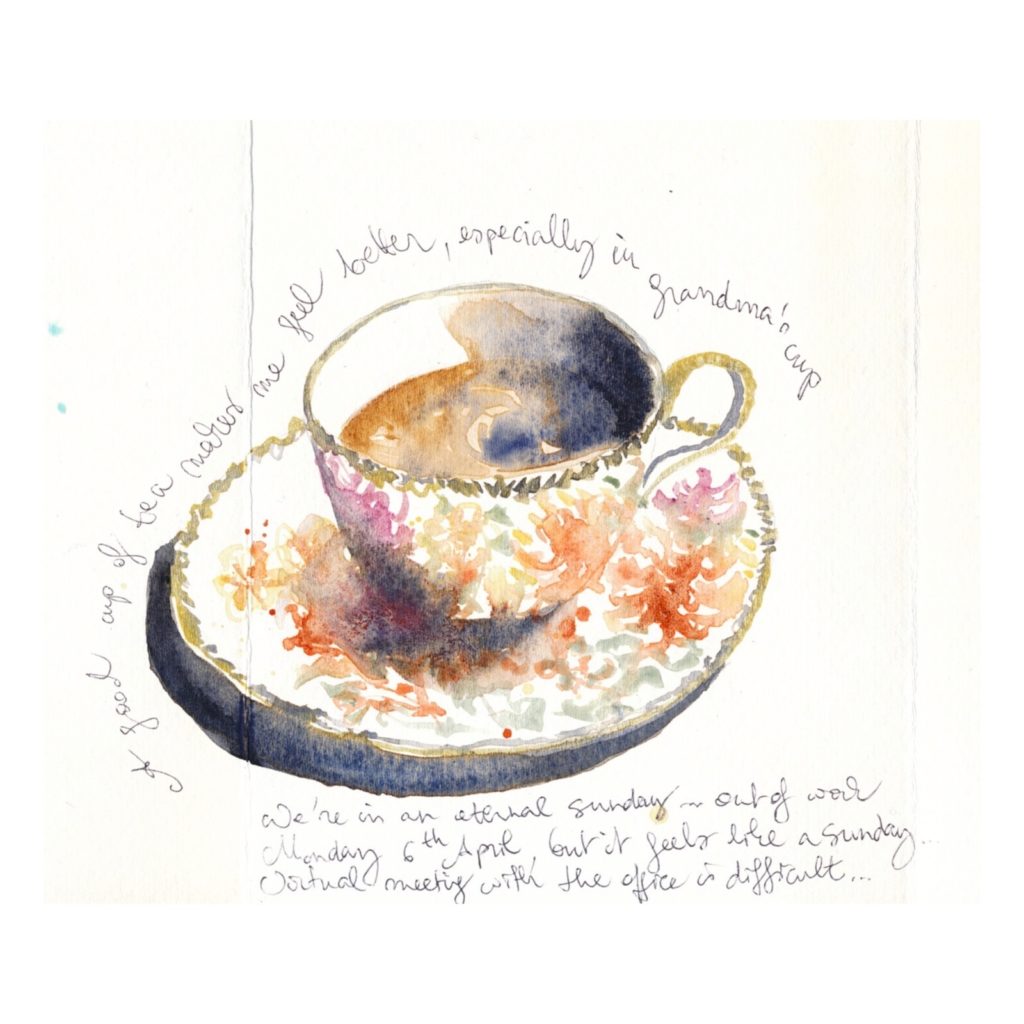 A good cup of tea makes me feel better, especially in grandma's cup
We're in an eternal sunday ~ out of work
Monday 6th April, but it feels like a Sunday...
Virtual meetig with the office is difficult...